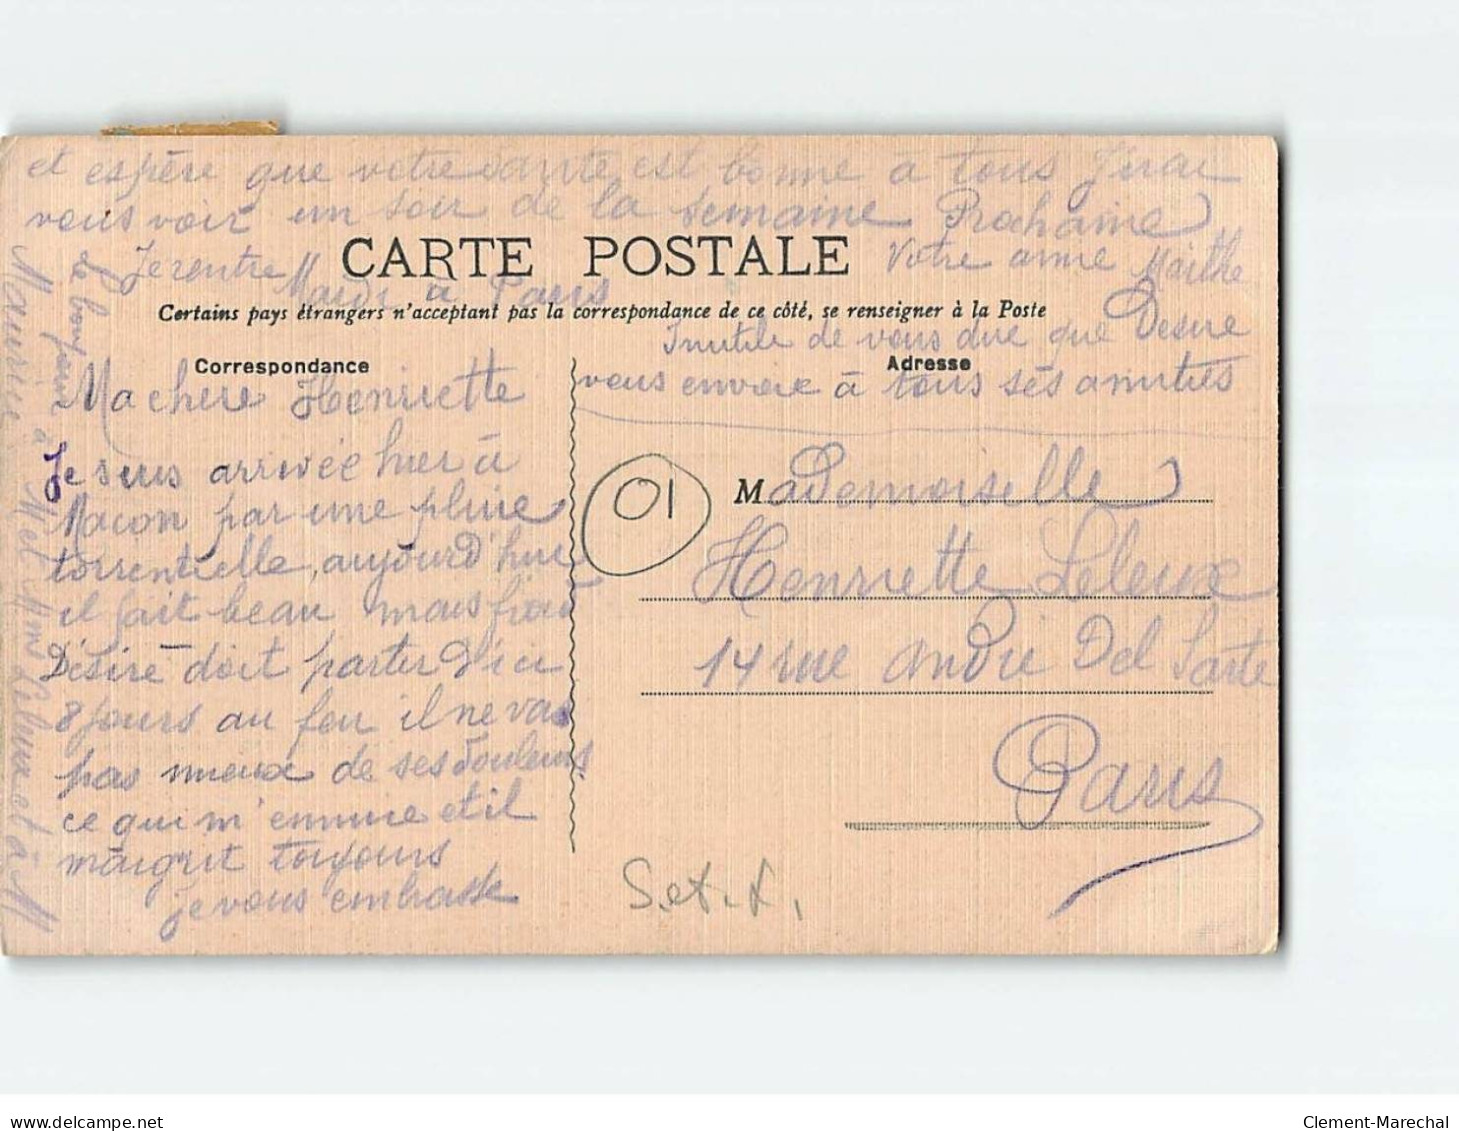 Ma chere Henriette
Je suis arrivée hier à
Macon par une pluie
torrentielle, aujourd'hui
il fait beau mais froid
Désiré doit partir d'ici
8 jours au feu il ne va
pas mieux de ses douleurs
ce qui m'ennuie et il
maigrit toujours
je vous embrasse
et espère que votre santé est bonne à tous J'irai
vous voir un soir de la semaine Prochaine
Je rentre Mardi à Paris
Votre amie Marthe
Inutile de vous dire que Desire
vous envoie à tous ses amitiés
Le bonjour à
Maurice à M et Mme Leleux et à M
CARTE POSTALE
Certains pays étrangers n'acceptent pas la correspondance de ce côté, se renseigner à la Poste
Correspondance
Adresse
01
Mademoiselle
Henriette Leleux
14 rue André Del Sarte
Paris
S.et.L.
delcampe.net
Clement-Marechal